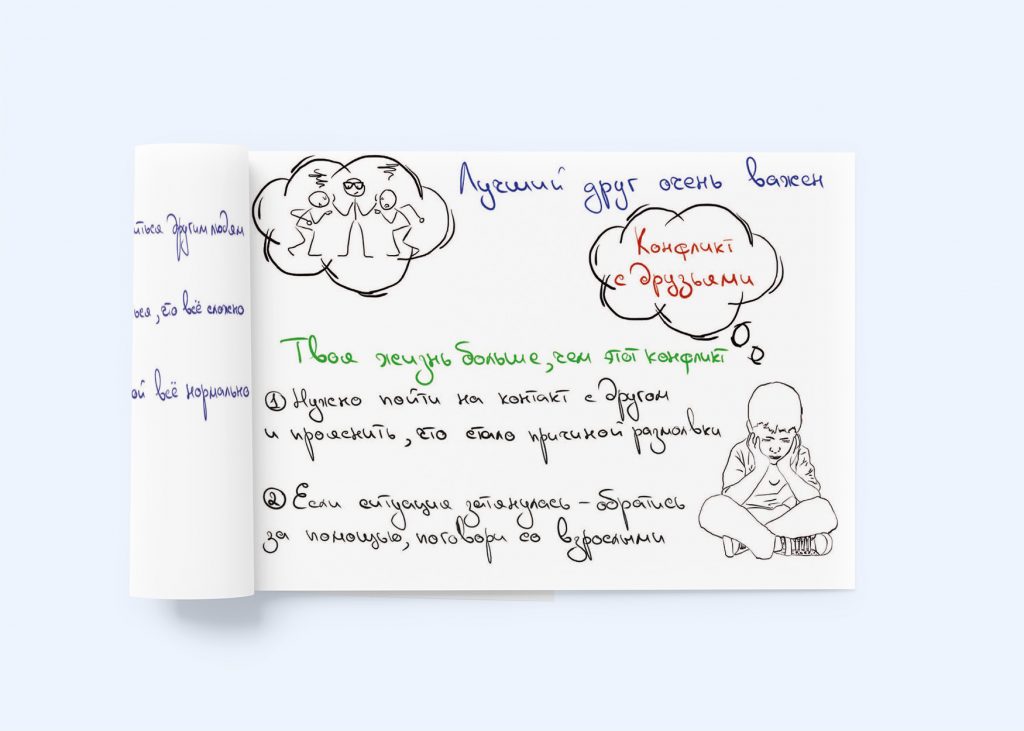 иться другим людям
ься, что всё сложно
ой всё нормально
Лучший друг очень важен
Конфликт
с друзьями
Твоя жизнь больше, чем этот конфликт
1 Нужно пойти на контакт с другом
и прояснить, что стало причиной размолвки
2 Если ситуация затянулась – обратись
за помощью, поговори со взрослыми